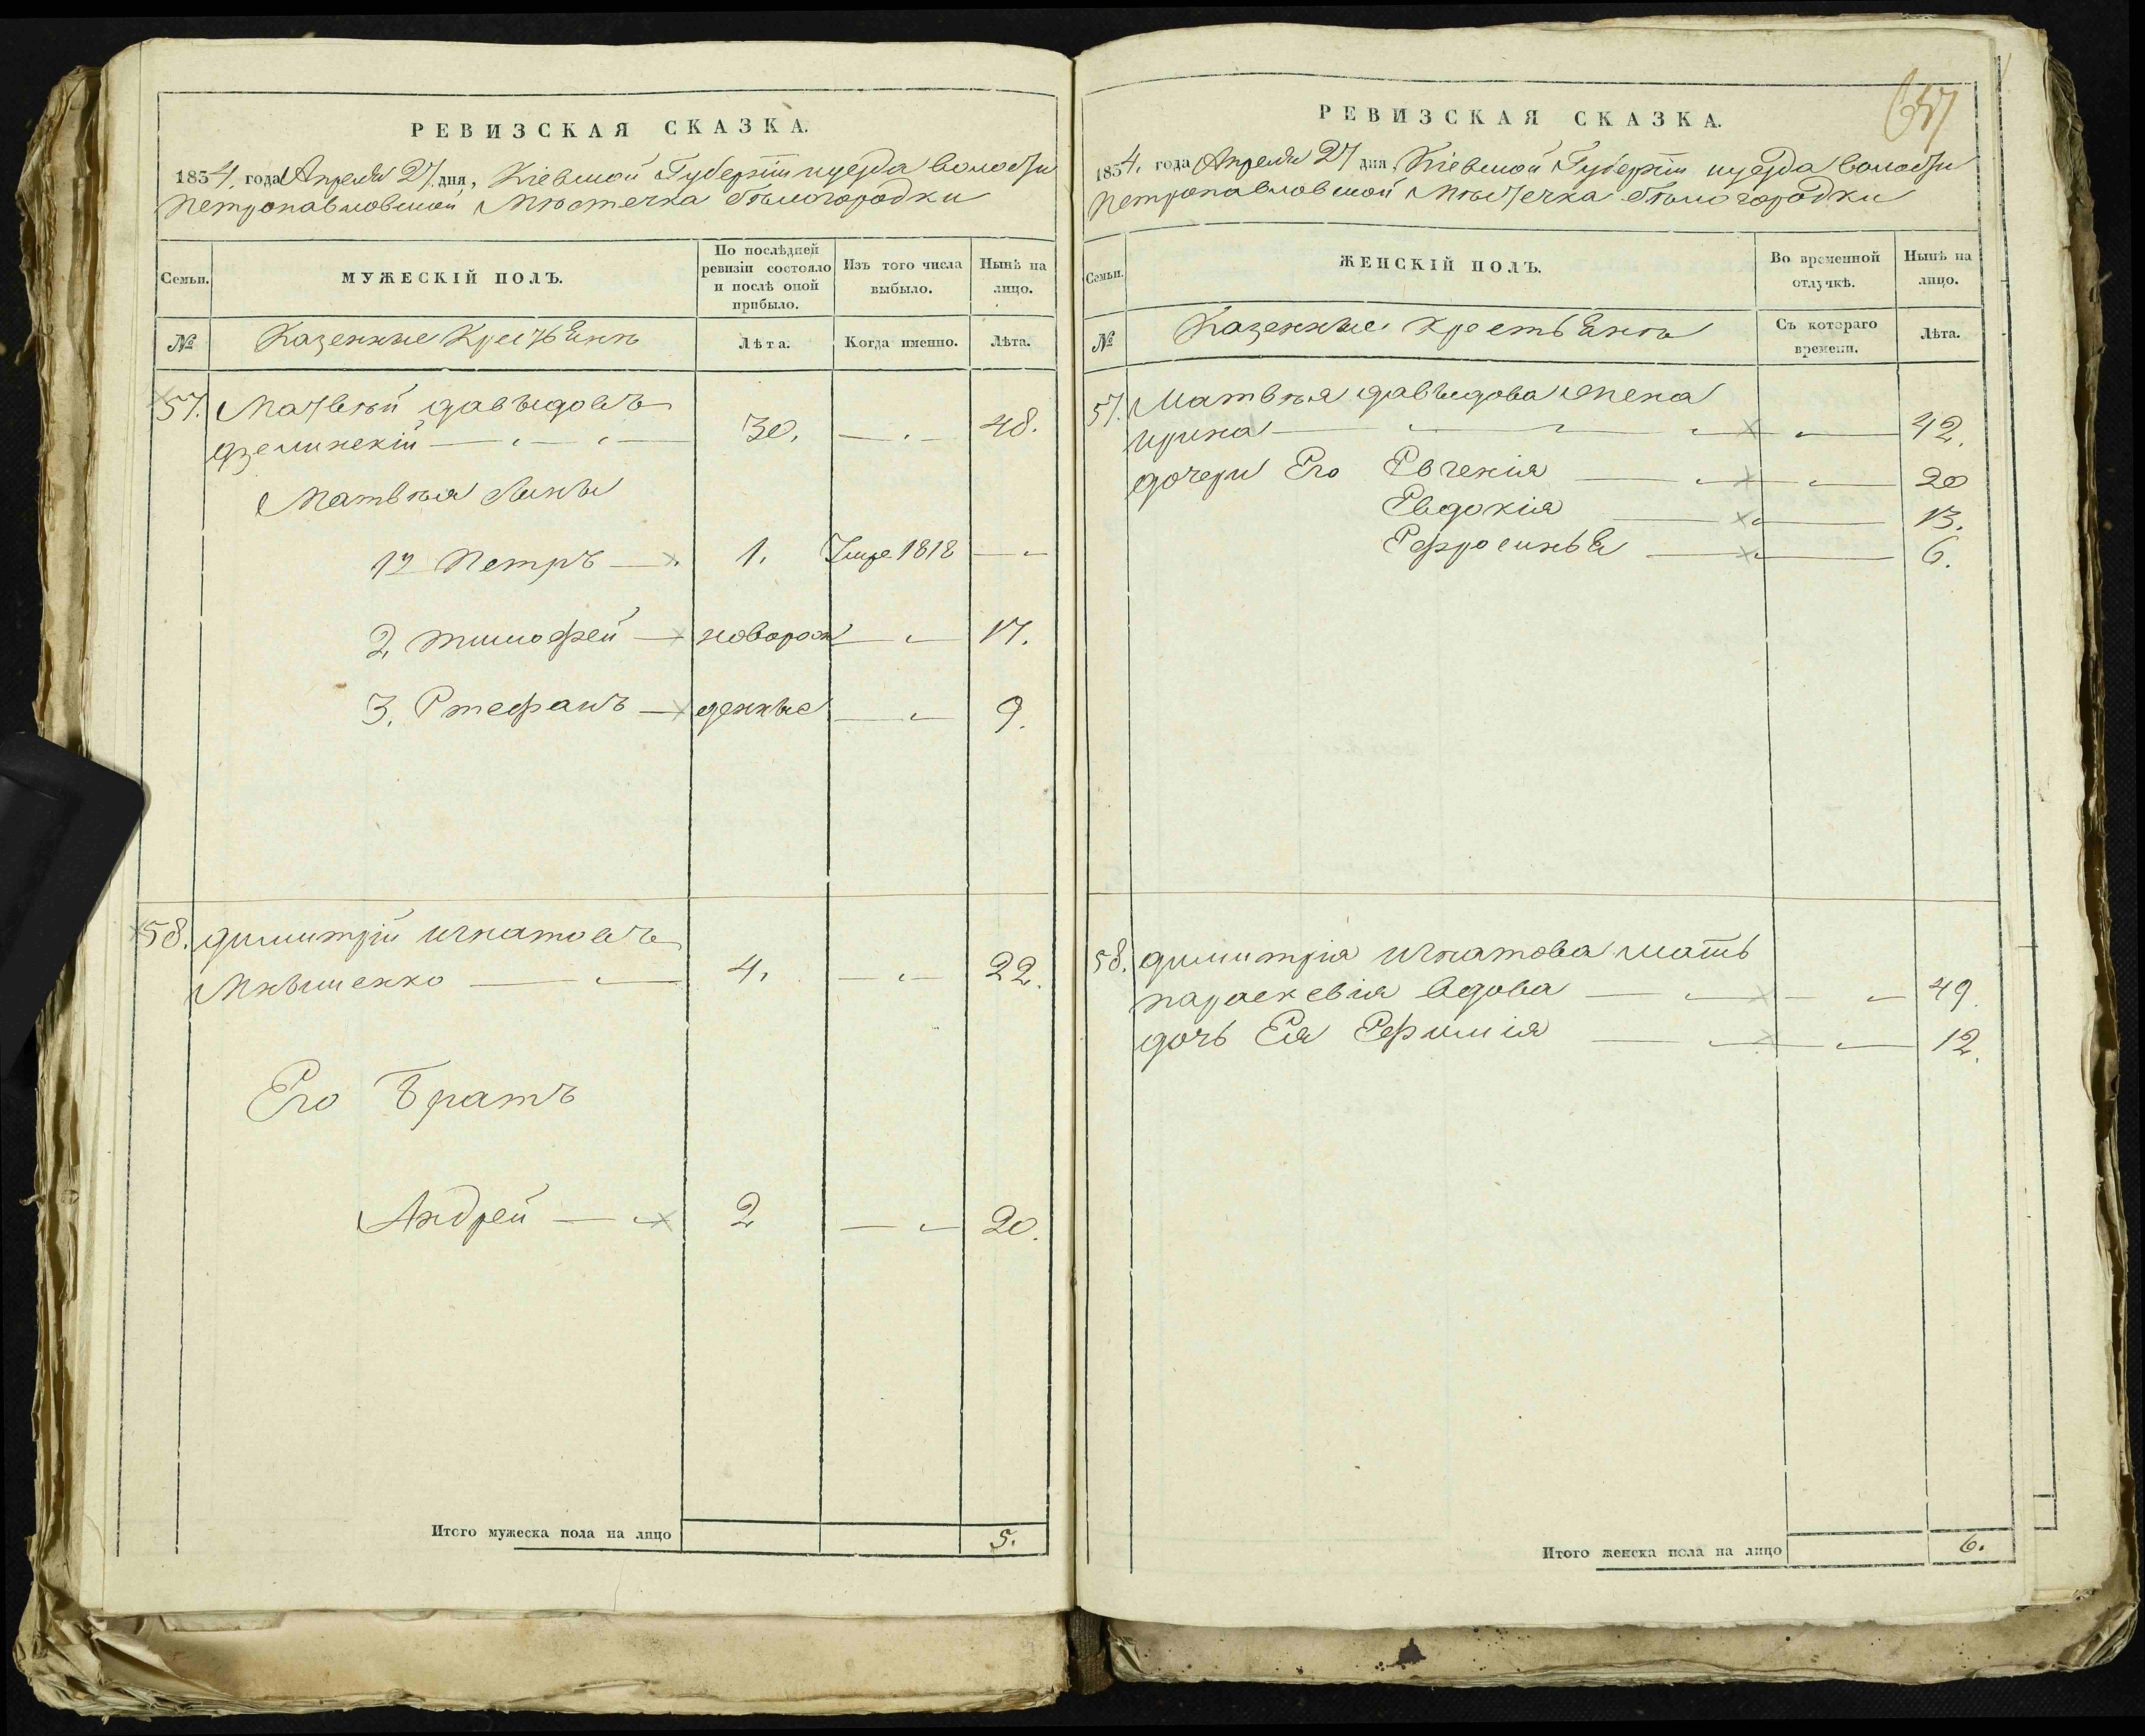 РЕВИЗСКАЯ СКАЗКА.
1834. года Апреля 27. дня, Кіевской Губерніи и уезда волости
Петропавловской Мѣстечка Бѣлогородки
Семьи.
МУЖЕСКІЙ ПОЛЪ.
По послѣдней ревизіи состояло и послѣ оной прибыло.
Изъ того числа выбыло.
Нынѣ на лицо.
№
Казенные Крестьянѣ
Лѣта.
Когда именно.
Лѣта.
57. Матвѣй давыдовъ
дзелинскій 30. 48.
Матвѣя сыны
1й Петръ 1. Умре 1818
2, тимофей новорож 17.
3. Стефанъ денные 9.
58. димитрій игнатовъ
4. 22.
Его Братъ
Андрей 2 20.
Итого мужеска пола на лицо 5.
657
РЕВИЗСКАЯ СКАЗКА.
1834. года Апреля 27 дня, Кіевской Губерніи и уезда волости
Петропавловской Мѣстечка Бѣлогородки
Семьи.
ЖЕНСКІЙ ПОЛЪ.
Во временной отлучкѣ.
Нынѣ на лицо.
№
Казенные крестьянѣ
Съ котораго времени.
Лѣта.
57. Матвѣя давыдова жена
ирина 42.
дочери Его Евгенія 20
Евдокія 13.
Ефросинья 6.
58. димитрія игнатова мать
параскевія вдова 49.
дочь Ея Ефимія 12.
Итого женска пола на лицо 6.